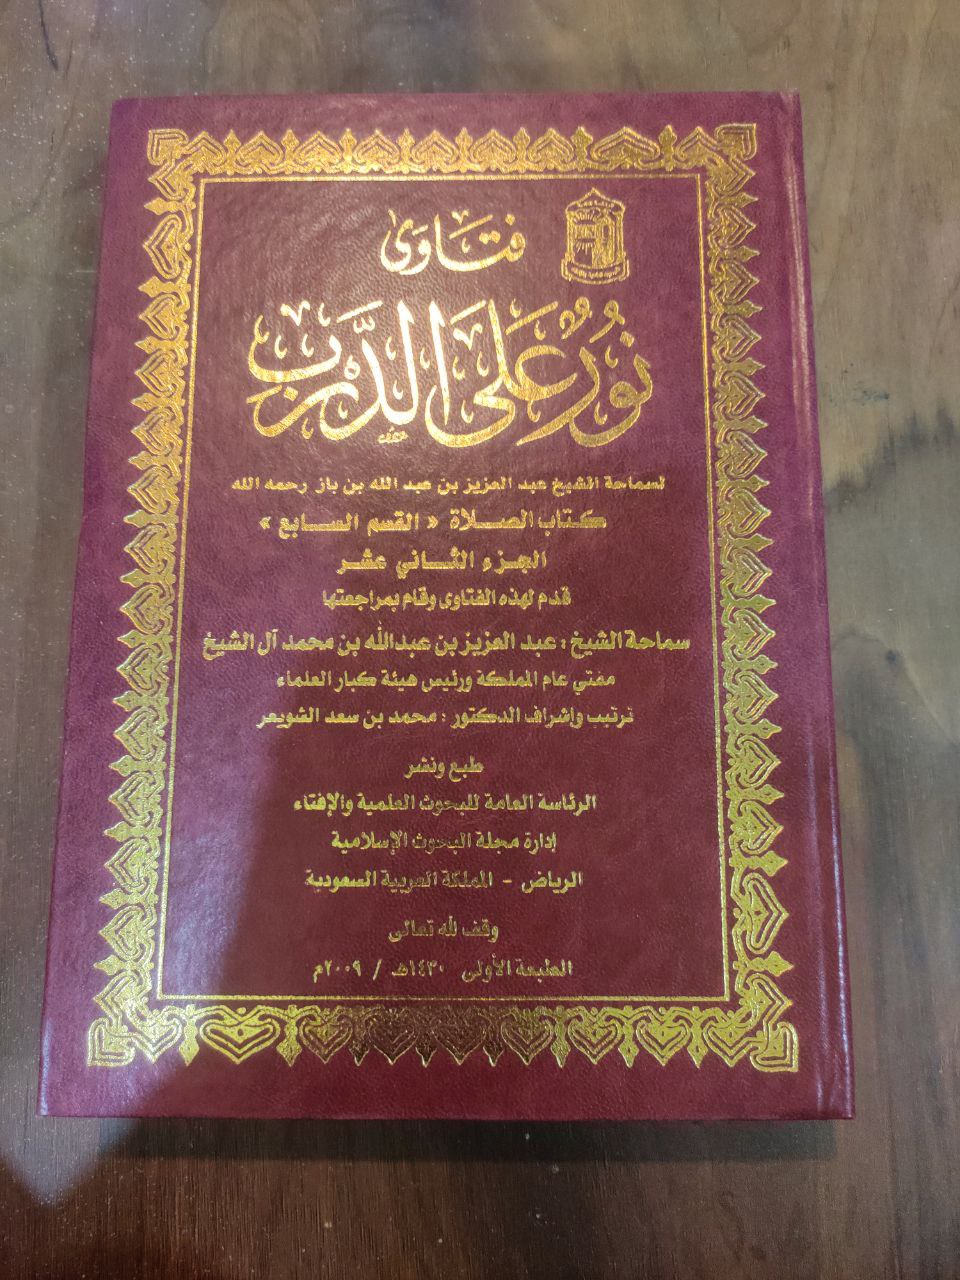 فتاوى
نُورٌ عَلَى الدَّرْبِ
لسماحة الشيخ عبد العزيز بن عبد الله بن باز رحمه الله
كتاب الصلاة « القسم السابع »
الجزء الثاني عشر
قدم لهذه الفتاوى وقام بمراجعتها
سماحة الشيخ : عبد العزيز بن عبدالله بن محمد آل الشيخ
مفتي عام المملكة ورئيس هيئة كبار العلماء
ترتيب وإشراف الدكتور : محمد بن سعد الشويعر
طبع ونشر
الرئاسة العامة للبحوث العلمية والإفتاء
إدارة مجلة البحوث الإسلامية
الرياض - المملكة العربية السعودية
وقف لله تعالى
الطبعة الأولى ١٤٣٠هـ / ٢٠٠٩م